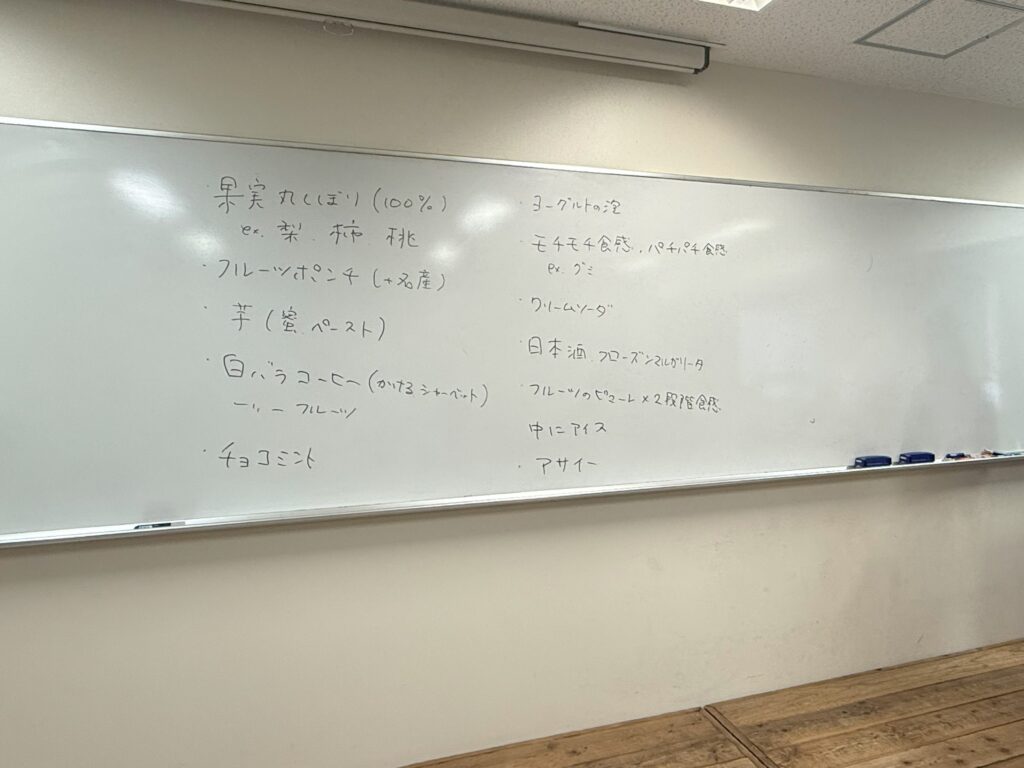 ・果実丸しぼり(100%)
ex. 梨. 柿. 桃
・フルーツポンチ(+名産)
・芋(蜜. ペースト)
・白バラコーヒー(かけるシャーベット)
フルーツ
・チョコミント
・ヨーグルトの泡
・モチモチ食感. パチパチ食感
ex. グミ
・クリームソーダ
・日本酒. フローズンマルガリータ
・フルーツのピューレ×2段階食感
中にアイス
・アサイー